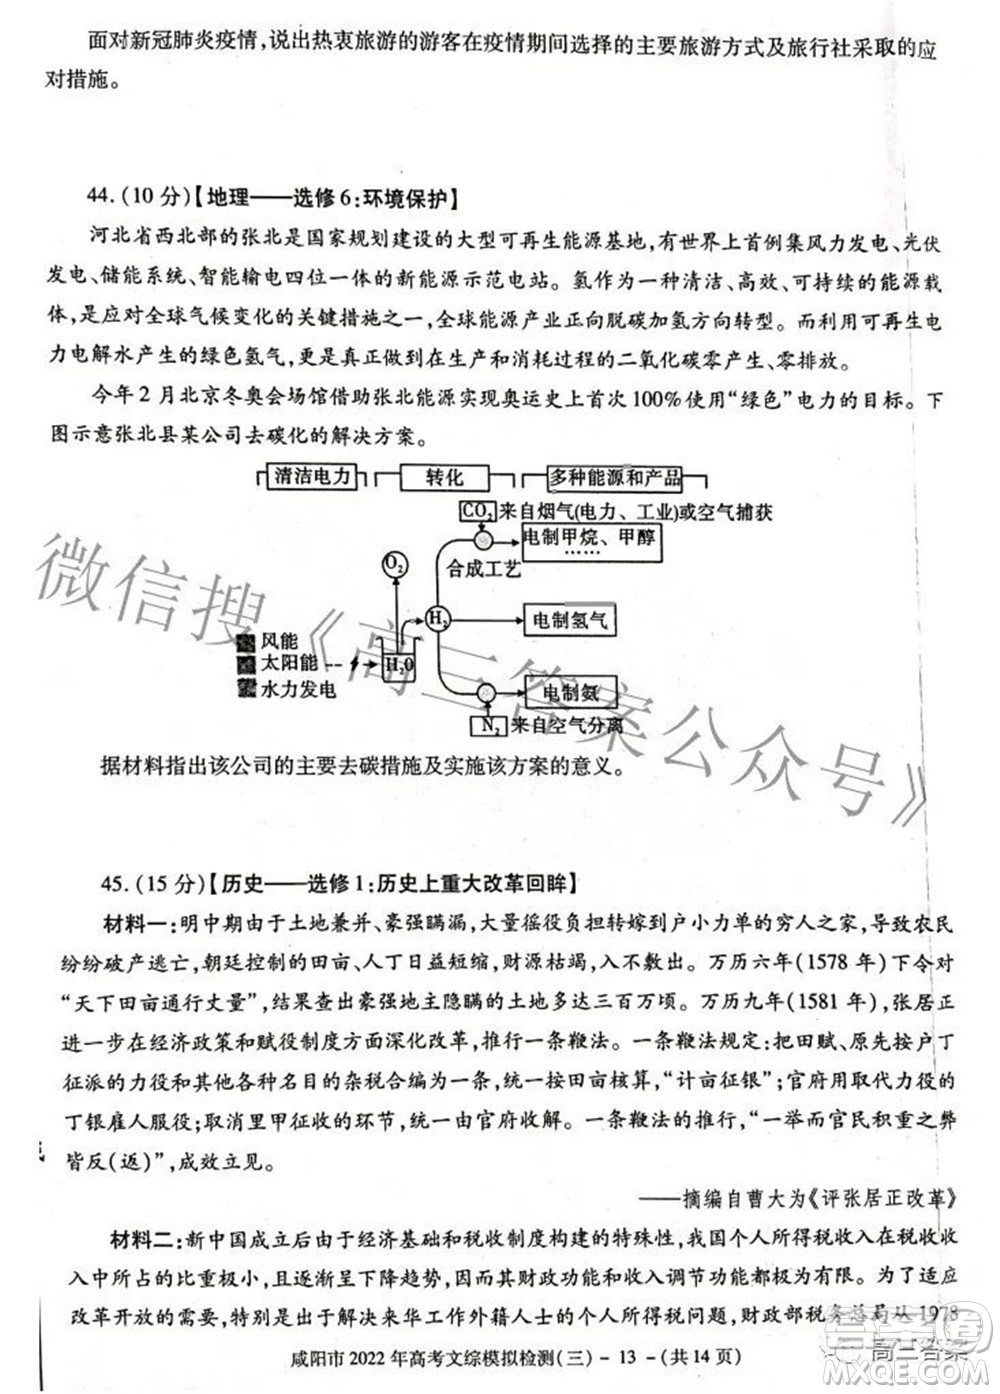 面对新冠肺炎疫情,说出热衷旅游的游客在疫情期间选择的主要旅游方式及旅行社采取的应
对措施。
44.(10 分)【地理——选修 6:环境保护】
河北省西北部的张北是国家规划建设的大型可再生能源基地,有世界上首例集风力发电、光伏
发电、储能系统、智能输电四位一体的新能源示范电站。氢作为一种清洁、高效、可持续的能源载
体,是应对全球气候变化的关键措施之一,全球能源产业正向脱碳加氢方向转型。而利用可再生电
力电解水产生的绿色氢气,更是真正做到在生产和消耗过程的二氧化碳零产生、零排放。
今年 2 月北京冬奥会场馆借助张北能源实现奥运史上首次 100%使用“绿色”电力的目标。下
图示意张北县某公司去碳化的解决方案。
清洁电力 转化 多种能源和产品
CO₂ 来自烟气(电力、工业)或空气捕获
电制甲烷、甲醇
……
合成工艺
O₂
H₂
电制氢气
风能
太阳能
水力发电
H₂O
电制氨
N₂ 来自空气分离
据材料指出该公司的主要去碳措施及实施该方案的意义。
45.(15 分)【历史——选修 1:历史上重大改革回眸】
材料一:明中期由于土地兼并、豪强瞒漏,大量徭役负担转嫁到户小力单的穷人之家,导致农民
纷纷破产逃亡,朝廷控制的田亩、人丁日益短缩,财源枯竭,入不敷出。万历六年(1578 年)下令对
“天下田亩通行丈量”,结果查出豪强地主隐瞒的土地多达三百万顷。万历九年(1581 年),张居正
进一步在经济政策和赋役制度方面深化改革,推行一条鞭法。一条鞭法规定:把田赋、原先按户丁
征派的力役和其他各种名目的杂税合编为一条,统一按田亩核算,“计亩征银”;官府用取代力役的
丁银雇人服役;取消里甲征收的环节,统一由官府收解。一条鞭法的推行,“一举而官民积重之弊
皆反(返)”,成效立见。
——摘编自曹大为《评张居正改革》
材料二:新中国成立后由于经济基础和税收制度构建的特殊性,我国个人所得税收入在税收收
入中所占的比重极小,且逐渐呈下降趋势,因而其财政功能和收入调节功能都极为有限。为了适应
改革开放的需要,特别是出于解决来华工作外籍人士的个人所得税问题,财政部税务总局从 1978
咸阳市 2022 年高考文综模拟检测(三)- 13 -(共 14 页)
微信搜《高三答案公众号》
高三答案